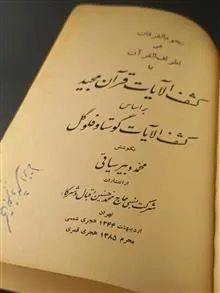 نجوم الفرقان
فی
اطراف القرآن
یا
کشف الآیات قرآن مجید
بر اساس
کشف الآیات گوستاو فلوگل
بکوشش
محمد دبیر سیاقی
از انتشارات
شرکت نسبی حاج محمد حسین اقبال و شرکاء
تهران
اردیبهشت ۱۳۴۴ هجری شمسی
محرم ۱۳۸۵ هجری قمری